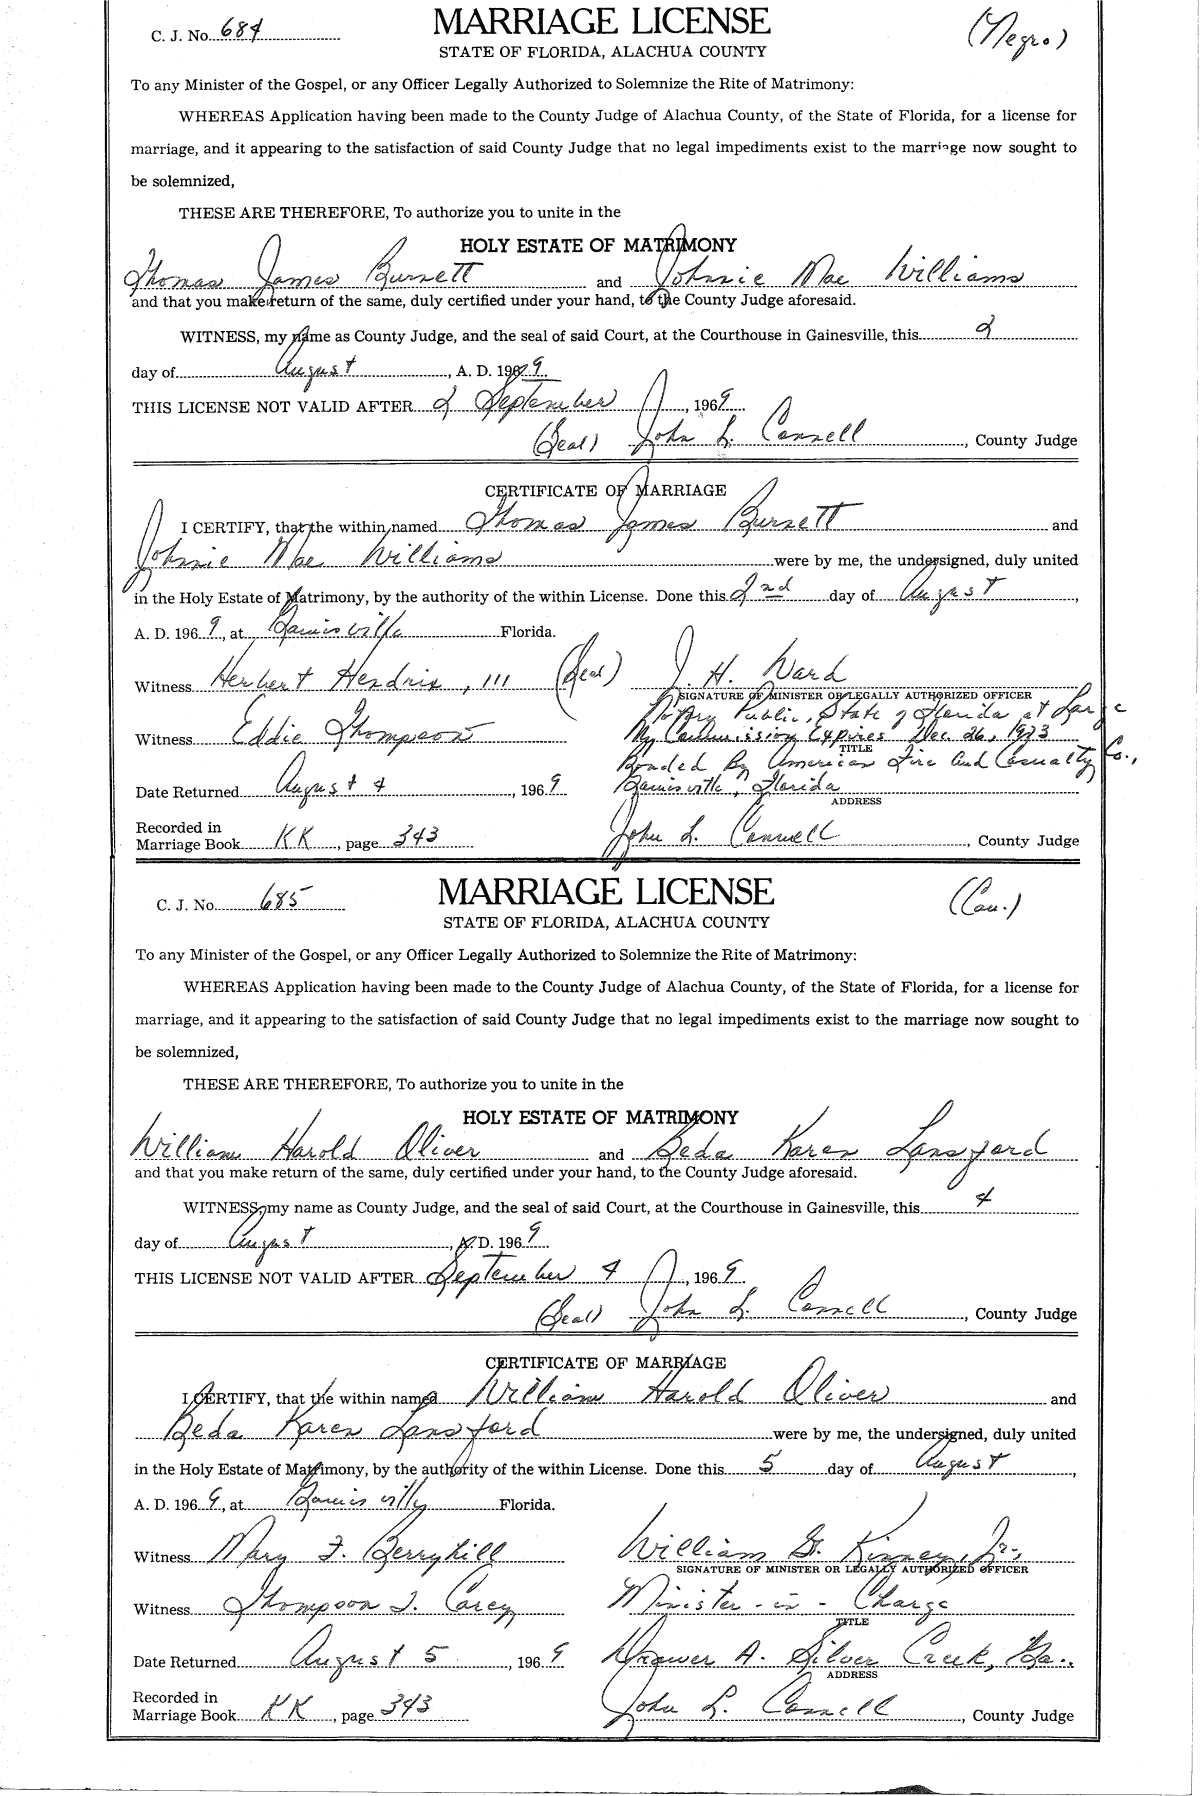 C. J. No. 684 MARRIAGE LICENSE (Negro)
STATE OF FLORIDA, ALACHUA COUNTY
To any Minister of the Gospel, or any Officer Legally Authorized to Solemnize the Rite of Matrimony:
WHEREAS Application having been made to the County Judge of Alachua County, of the State of Florida, for a license for
marriage, and it appearing to the satisfaction of said County Judge that no legal impediments exist to the marriage now sought to
be solemnized,
THESE ARE THEREFORE, To authorize you to unite in the
HOLY ESTATE OF MATRIMONY
Thomas James Burnett and Johnnie Mae Williams
and that you make return of the same, duly certified under your hand, to the County Judge aforesaid.
WITNESS, my name as County Judge, and the seal of said Court, at the Courthouse in Gainesville, this 2
day of August, A. D. 1969
THIS LICENSE NOT VALID AFTER 2 September, 1969
(Seal) John L. Connell, County Judge
CERTIFICATE OF MARRIAGE
I CERTIFY, that the within named Thomas James Burnett and
Johnnie Mae Williams were by me, the undersigned, duly united
in the Holy Estate of Matrimony, by the authority of the within License. Done this 2nd day of August,
A. D. 1969, at Gainesville Florida.
Witness Herbert Hendrix, III (Seal) J. H. Ward
SIGNATURE OF MINISTER OR LEGALLY AUTHORIZED OFFICER
Notary Public, State of Florida at Large
Witness Eddie Thompson My Commission Expires Dec. 26, 1973
TITLE
Bonded By American Fire and Casualty Co.,
Date Returned August 4, 1969 Gainesville, Florida
ADDRESS
Recorded in
Marriage Book KK, page 343 John L. Connell, County Judge
C. J. No. 685 MARRIAGE LICENSE (Cau.)
STATE OF FLORIDA, ALACHUA COUNTY
To any Minister of the Gospel, or any Officer Legally Authorized to Solemnize the Rite of Matrimony:
WHEREAS Application having been made to the County Judge of Alachua County, of the State of Florida, for a license for
marriage, and it appearing to the satisfaction of said County Judge that no legal impediments exist to the marriage now sought to
be solemnized,
THESE ARE THEREFORE, To authorize you to unite in the
HOLY ESTATE OF MATRIMONY
William Harold Oliver and Beda Karen Lansford
and that you make return of the same, duly certified under your hand, to the County Judge aforesaid.
WITNESS, my name as County Judge, and the seal of said Court, at the Courthouse in Gainesville, this 4
day of August, A. D. 1969
THIS LICENSE NOT VALID AFTER September 4, 1969
(Seal) John L. Connell, County Judge
CERTIFICATE OF MARRIAGE
I CERTIFY, that the within named William Harold Oliver and
Beda Karen Lansford were by me, the undersigned, duly united
in the Holy Estate of Matrimony, by the authority of the within License. Done this 5 day of August,
A. D. 1969, at Gainesville Florida.
Witness Mary F. Berryhill William G. Kinney, Jr.,
SIGNATURE OF MINISTER OR LEGALLY AUTHORIZED OFFICER
Witness Thompson T. Carey Minister-in-Charge
TITLE
Date Returned August 5, 1969 Drawer A. Silver Creek, Ga.,
ADDRESS
Recorded in
Marriage Book KK, page 343 John L. Connell, County Judge